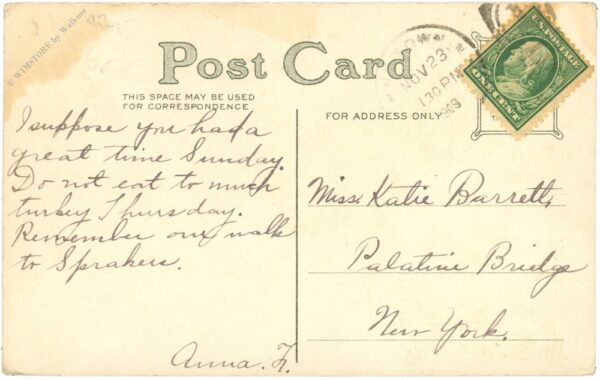 © WIMSTORE by Walkner
Post Card
THIS SPACE MAY BE USED
FOR CORRESPONDENCE
FOR ADDRESS ONLY
NOV 23
1 30 PM
1909
U.S. POSTAGE
ONE CENT
I suppose you had a
great time Sunday.
Do not eat to much
turkey Thursday.
Remember our walk
to Sprakers.
Anna. H.
Miss Katie Barrett,
Palatine Bridge
New York.